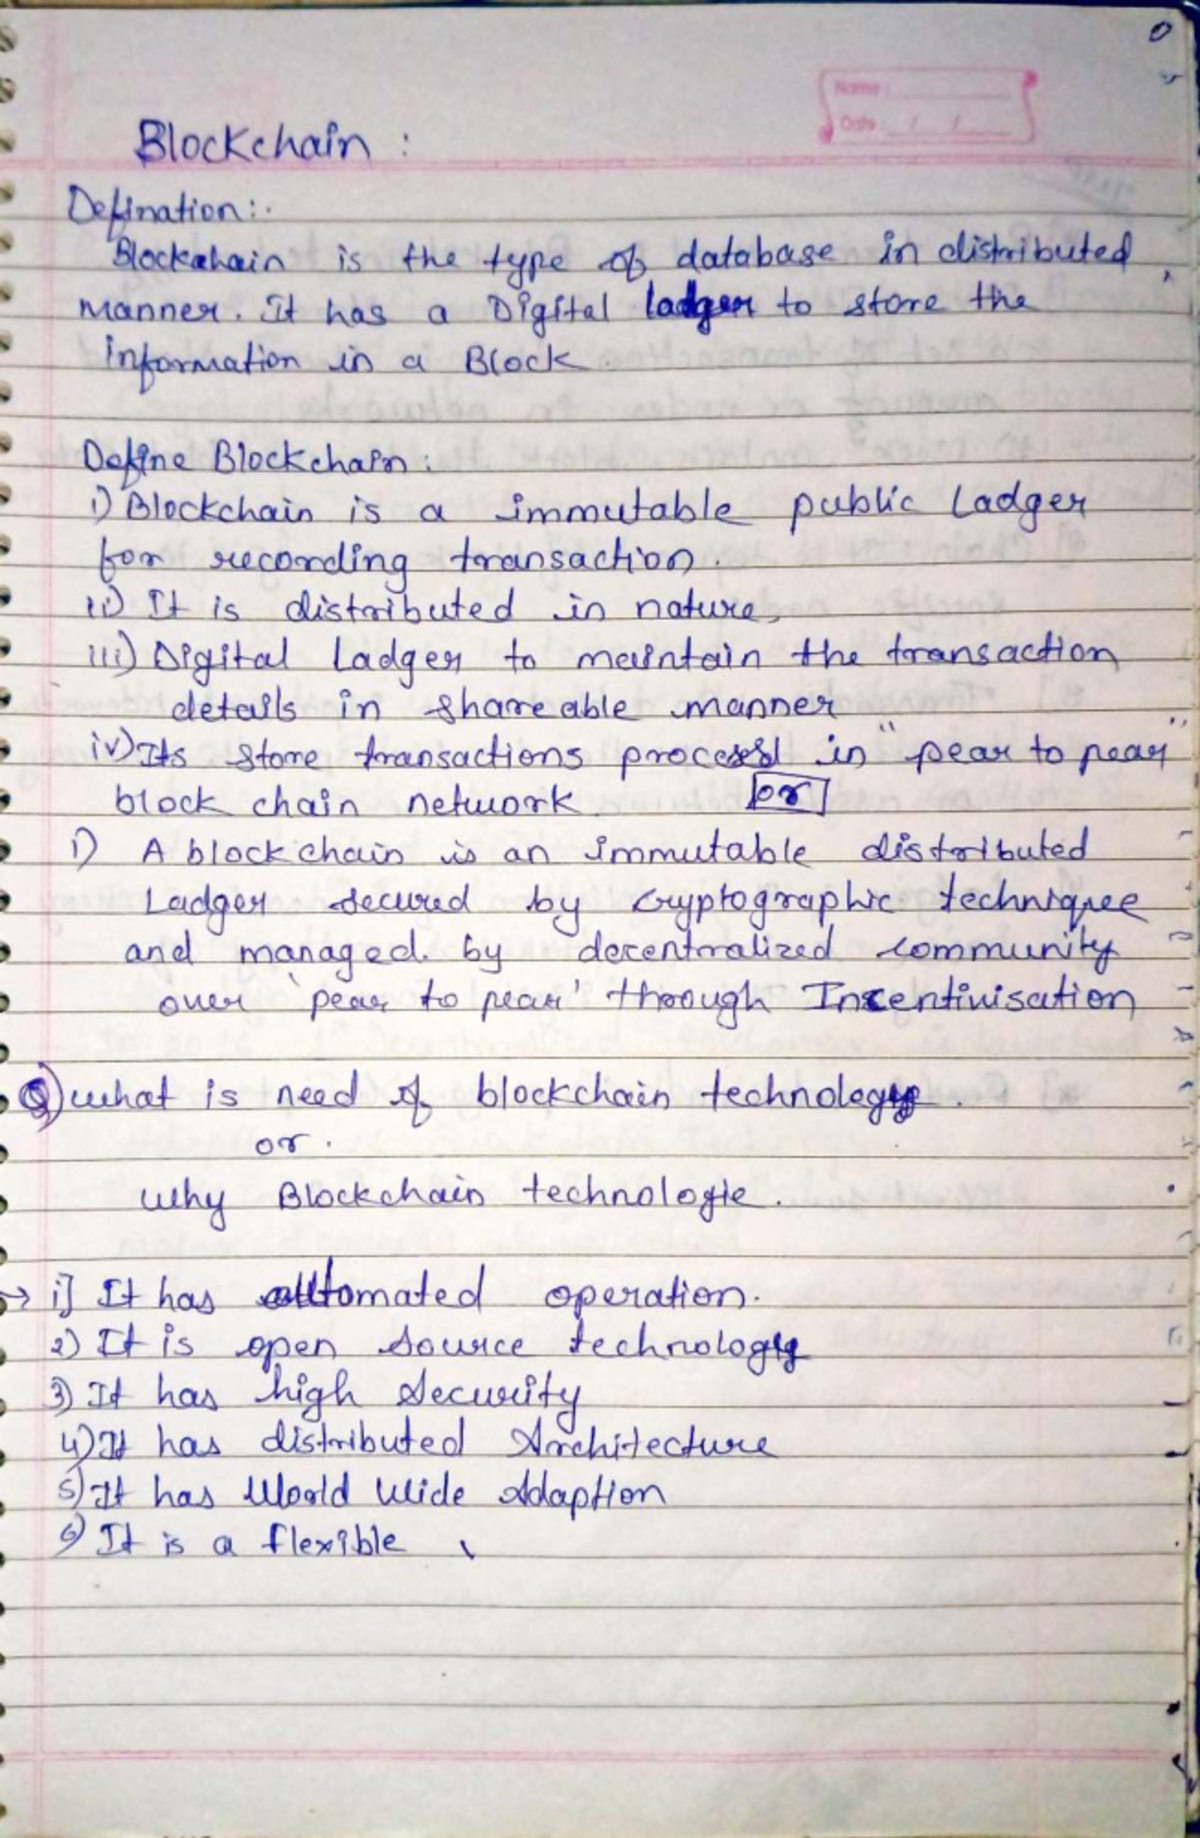 Name :
Date : / /
Blockchain :
Defination :.
Blockchain is the type of database in distributed
manner. It has a Digital ladger to store the
information in a Block.
Define Blockchain :
i) Blockchain is a immutable public Ladger
for recording transaction.
ii) It is distributed in nature,
iii) Digital Ladger to maintain the transaction
details in shareable manner
iv) Its store transactions processed in "pear to pear"
block chain network. or
i) A block chain is an immutable distributed
Ladger secured by cryptographic techniquee
and managed. by decentralized community
over 'pear to pear' through Incentivisation
Q) what is need of blockchain technology.
or.
why Blockchain technologie.
→ i] It has automated operation.
2) It is open source technology
3) It has high security
4) It has distributed Architecture
5) It has World Wide Adaption
6) It is a flexible